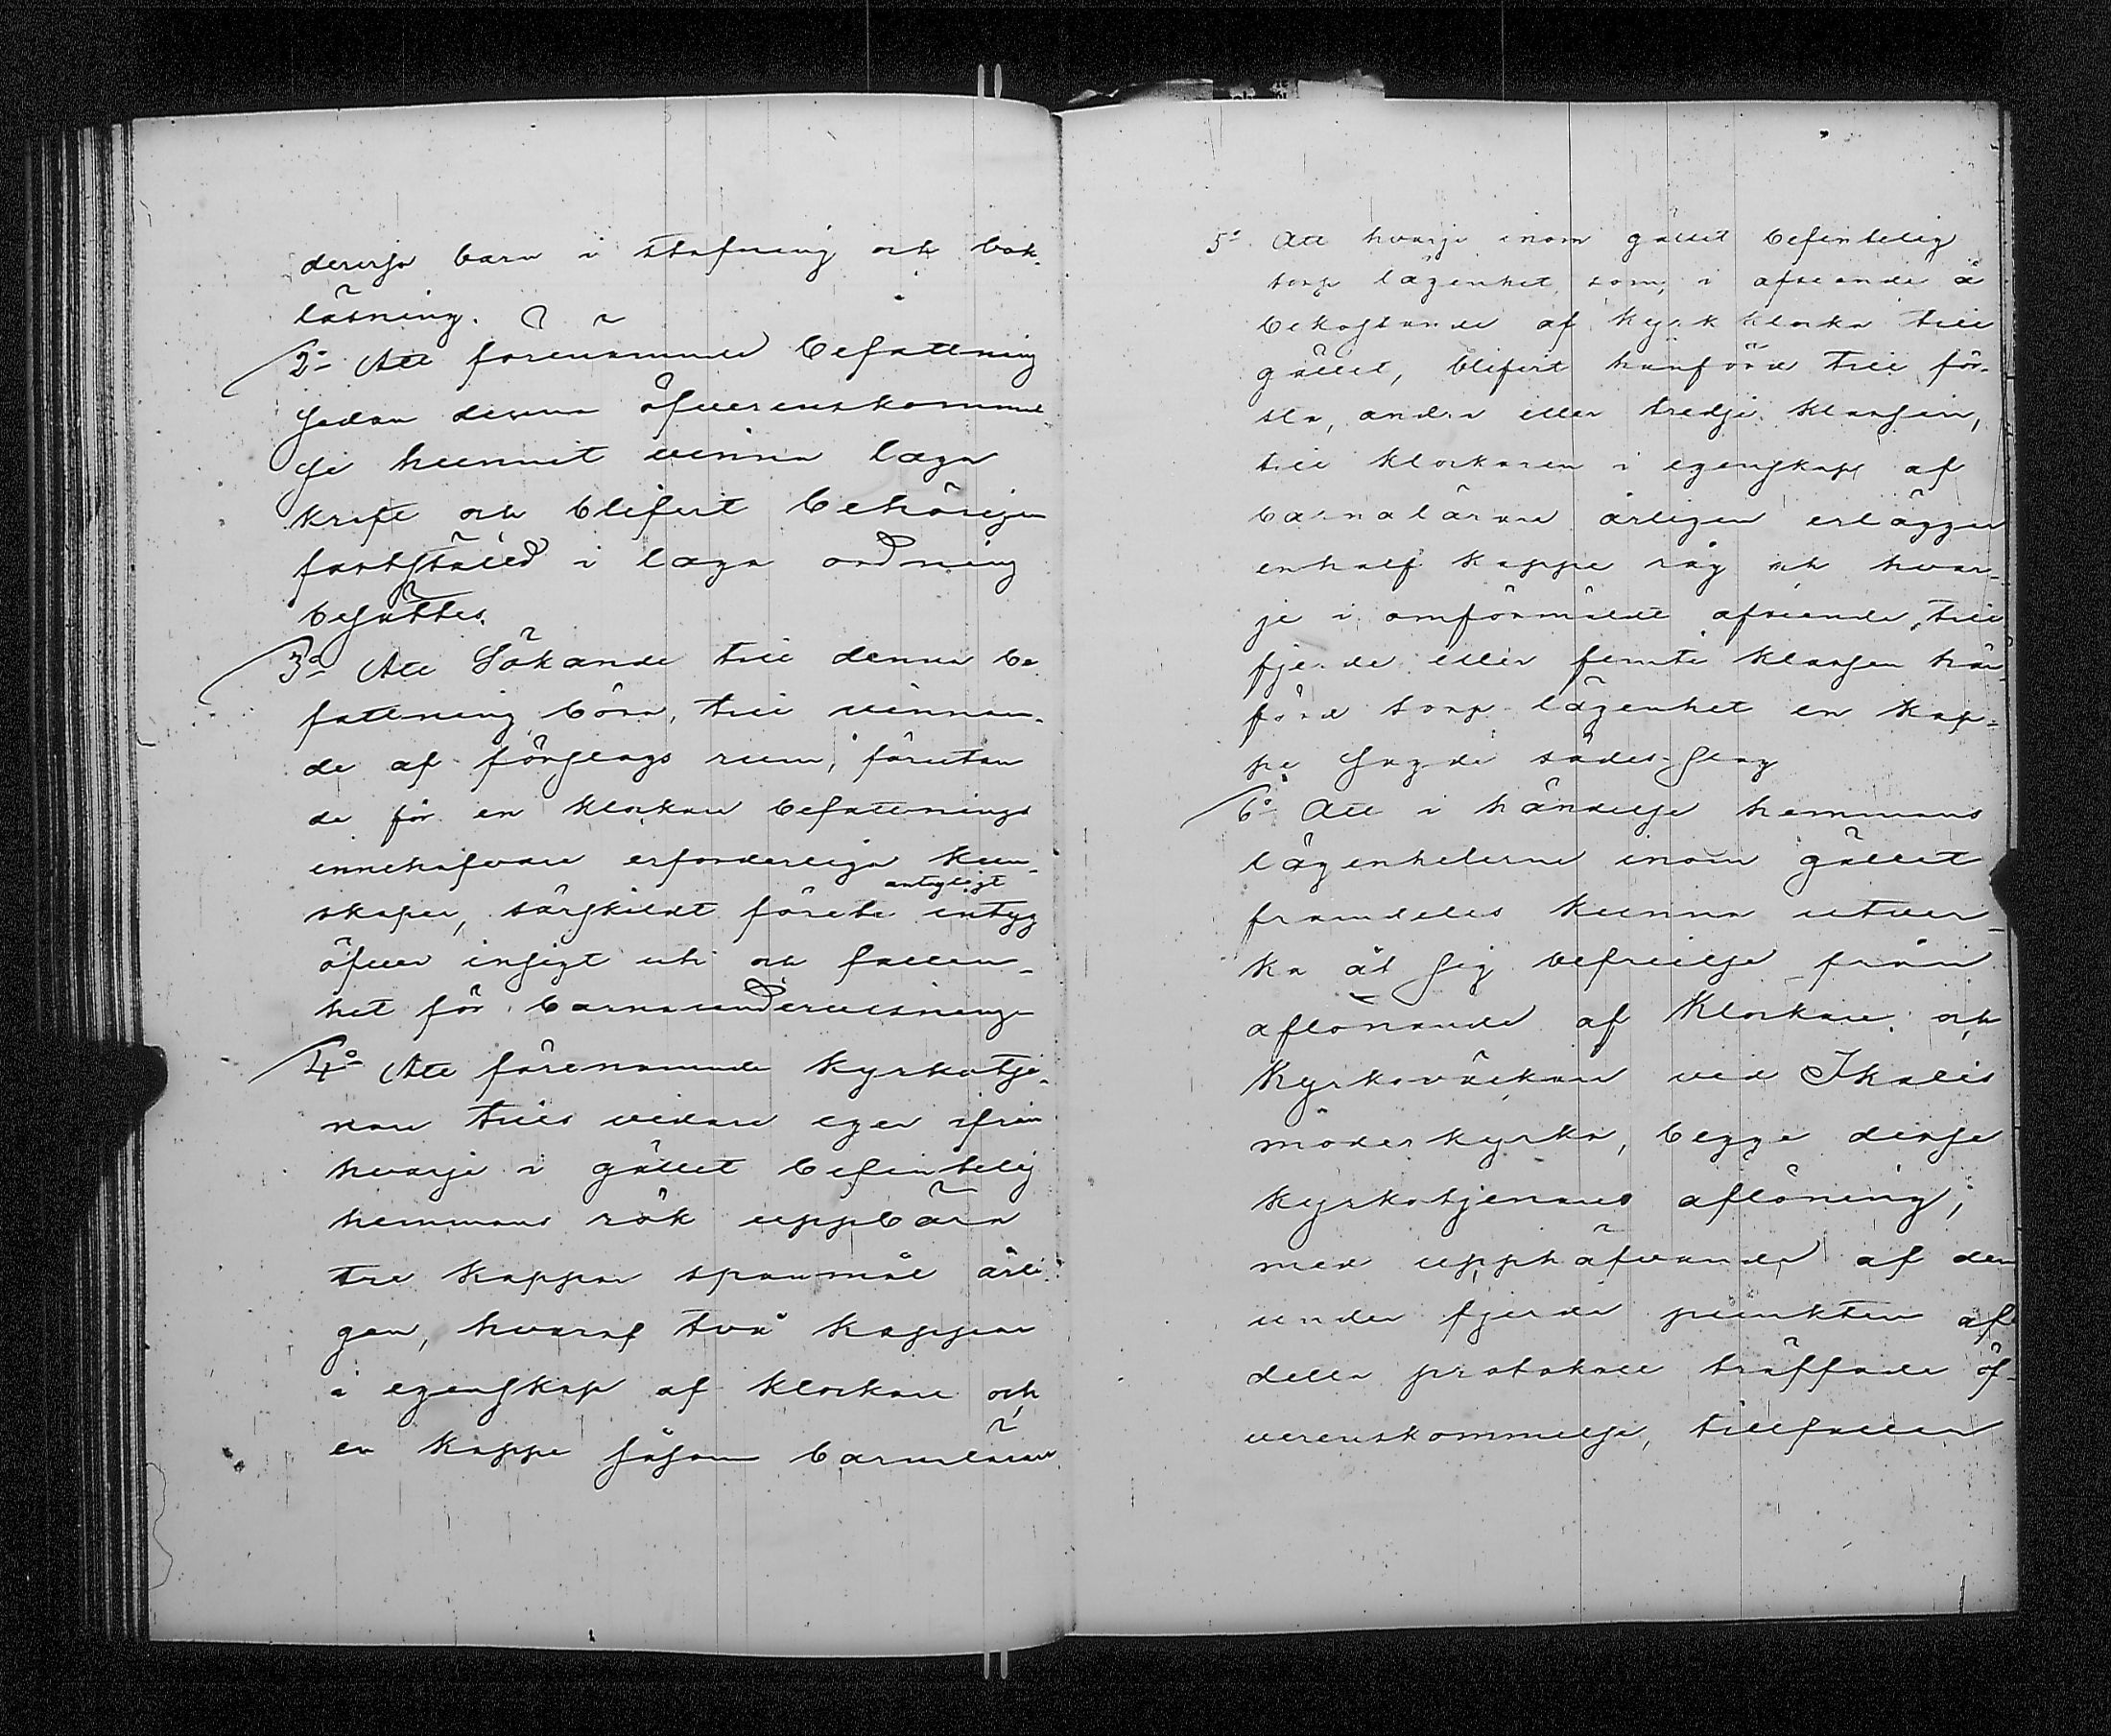 derass barn i stafning och bok-
läsning.
2o Att förenämnde befattning
sedan denna öfverenskommel-
se hunnit vinna laga
kraft och blifvit behörigen
fastställd i laga ordning
besättes.
3o Att Sökande till denna be-
fattning böra, till vinnan-
de af förslags rum, förutan
de för en klockare befattnings
innehafvare erforderliga kun-
antagligt
skaper, särskildt förete intyg
öfver insigt uti och fallen-
het för barnaundervisning
4o Att förenämnde kyrkotje-
nare tills vidare eger ifrån
hvarje i gället befintelig
hemmans rök uppbära
tre kappar spanmål årli-
gen, hvaraf två kappar
i egenskap af klockare och
en kappe såsom barnalärare
5o Att hvarje inom gället befintelig
torp lägenhet, som, i afseende å
bekostande af kyrk klocka till
gället, blifvit hänförd till för-
sta, andra eller tredje klassen,
till klockaren i egenskap af
barnalärare årligen erlägger
en half kappe råg och hvar-
je i omförmäldt afseende, till
fjerde eller femte klassen hän-
förd torp lägenhet en kap-
pe sagde sädes-slag
6o Att i händelse hemmans
lägenheterne inom gället
framdeles kunna utver-
ka åt sig befrielse från
aflönande af Klockare och
Kyrkoväckare vid Ikalis
moderkyrka, begge desse
kyrkotjenares aflöning,
med upphäfvande af den
under fjerde punkten af
detta protokoll träffade öf-
verenskommelse, tillfaller